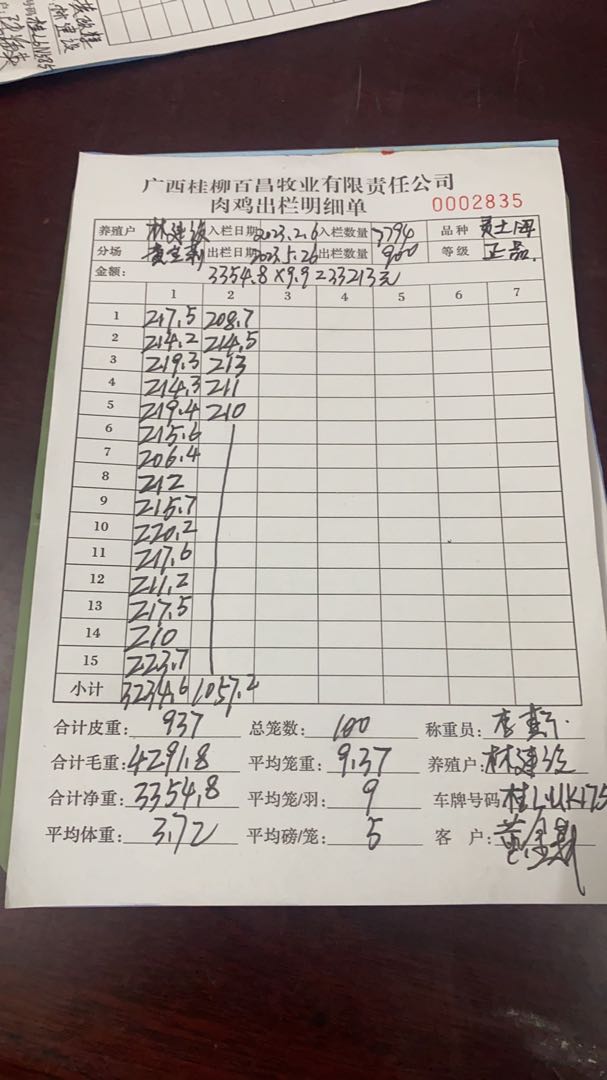 广西桂柳百昌牧业有限责任公司
肉鸡出栏明细单 0002835
养殖户 林建设 入栏日期 2023.2.6 入栏数量 7794 品种
分场 出栏日期 2023.5.26 出栏数量 900 等级 正品.
金额: 3354.8×9.9=33213元
1 2 3 4 5 6 7
1 217.5 208.7
2 214.2 214.5
3 219.3 213
4 214.3 211
5 219.4 210
6 215.6
7 206.4
8 212
9 215.7
10 220.2
11 217.6
12 211.2
13 217.5
14 210
15 223.7
小计 3234.6 1057.2
合计皮重: 937 总笼数: 100 称重员:
合计毛重: 4291.8 平均笼重: 9.37 养殖户: 林建设
合计净重: 3354.8 平均笼/羽: 9 车牌号码 桂LUK175
平均体重: 3.72 平均磅/笼: 5 客 户: